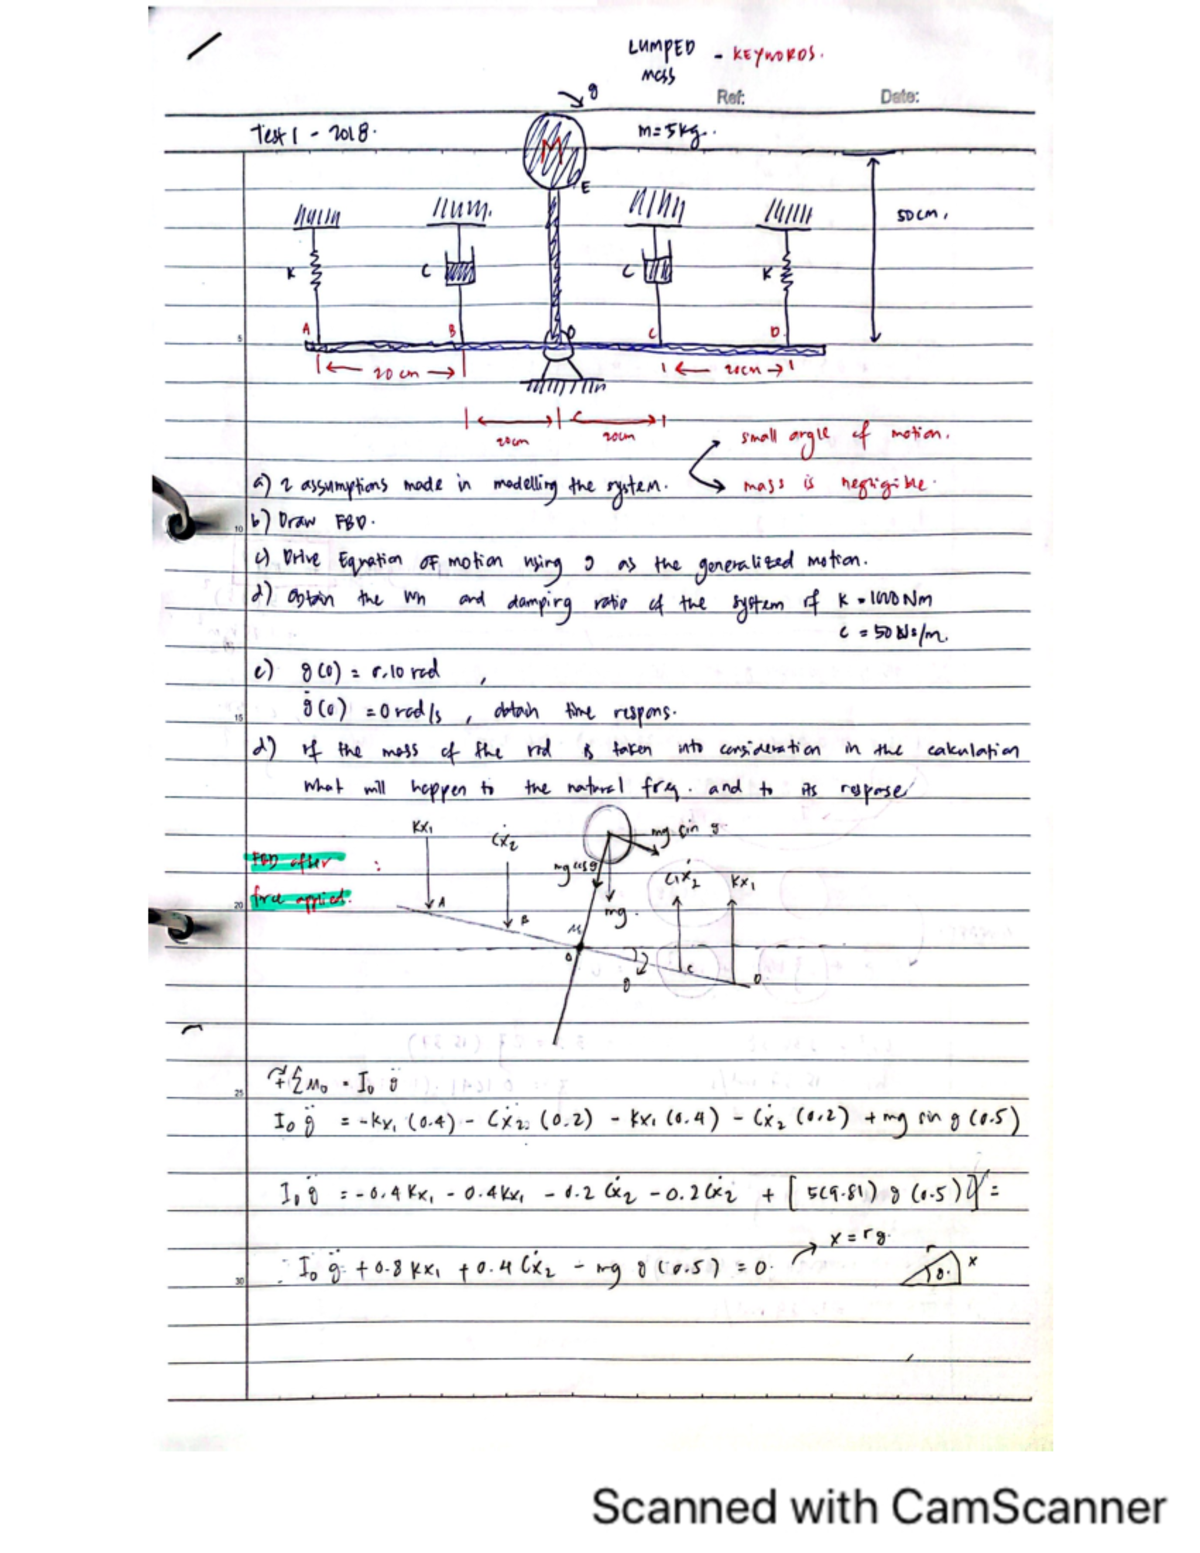 LUMPED - KEYWORDS.
mass
Ref: Date:
θ
Test 1 - 2018.
M = 5kg.
M
E
50cm.
K
C
C
K
A
B
O
C
D
5
20 cm
20cm
20cm
20cm
small angle of motion.
a) 2 assumptions made in modelling the system.
mass is negligible.
b) Draw FBD.
10
c) Drive Equation of motion using θ as the generalized motion.
d) obtain the Wn and damping ratio of the system if K = 1000 Nm
C = 50 Ns/m.
e) θ(0) = 0.10 rad ,
θ̇(0) = 0 rad/s , obtain time respons.
15
d) if the mass of the rod is taken into consideration in the calculation
what will happen to the natural freq. and to its response
Kx₁
Cẋ₂
mg sin θ
FBD after :
force applied.
mg cos θ
Cẋ₂
Kx₁
20
A
B
mg.
M
O
θ
C
D
+ΣMo = Io θ̈
25
Io θ̈ = -Kx₁ (0.4) - Cẋ₂ (0.2) - Kx₁ (0.4) - Cẋ₂ (0.2) + mg sin θ (0.5)
Io θ̈ = -0.4 Kx₁ - 0.4 Kx₁ - 0.2 Cẋ₂ - 0.2 Cẋ₂ + [5(9.81) θ (0.5)] =
x = rθ.
Io θ̈ + 0.8 Kx₁ + 0.4 Cẋ₂ - mg θ (0.5) = 0.
r
θ.
x
30
Scanned with CamScanner